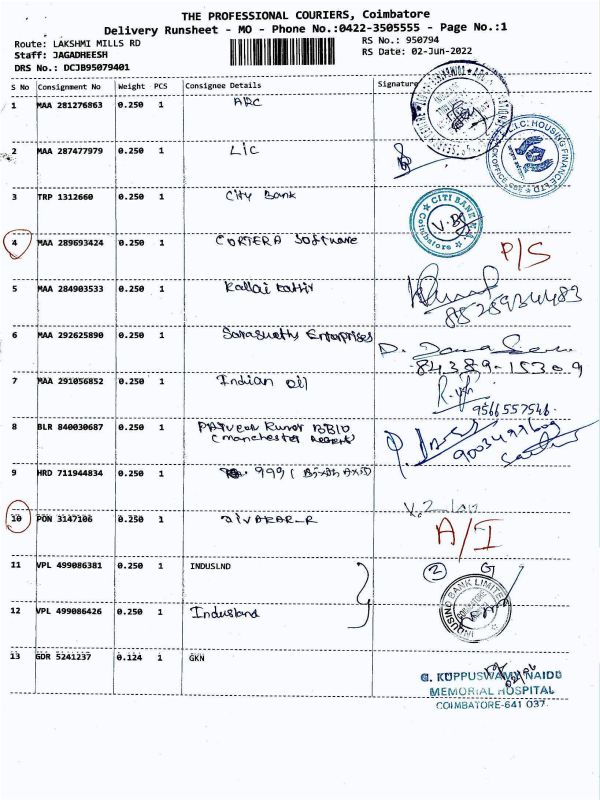 THE PROFESSIONAL COURIERS, Coimbatore
Delivery Runsheet - MO - Phone No.:0422-3505555 - Page No.:1
Route: LAKSHMI MILLS RD
RS No.: 950794
Staff: JAGADHEESH
RS Date: 02-Jun-2022
DRS No.: DCJB95079401
S No Consignment No Weight PCS Consignee Details Signature
1 MAA 281276863 0.250 1 ARC
2 MAA 287477979 0.250 1 LIC
LIC HOUSING FINANCE LTD
3 TRP 1312660 0.250 1 City Bank
CITI BANK N.A. Coimbatore
4 MAA 289693424 0.250 1 CORTERA Software P/S
5 MAA 284903533 0.250 1
8525934483
6 MAA 292625890 0.250 1 Enterprises
84389-15309
7 MAA 291056852 0.250 1 Indian oil
9566557546
8 BLR 840030687 0.250 1
9 HRD 711944834 0.250 1 9991
10 PDN 3147106 0.250 1 DIVAKAR-R A/I
11 VPL 499086381 0.250 1 INDUSLND 2
12 VPL 499086426 0.250 1 Indusland
INDUSIND BANK LIMITED
13 GDR 5241237 0.124 1 GKN
G. KUPPUSWAMY NAIDU
MEMORIAL HOSPITAL
COIMBATORE-641 037.